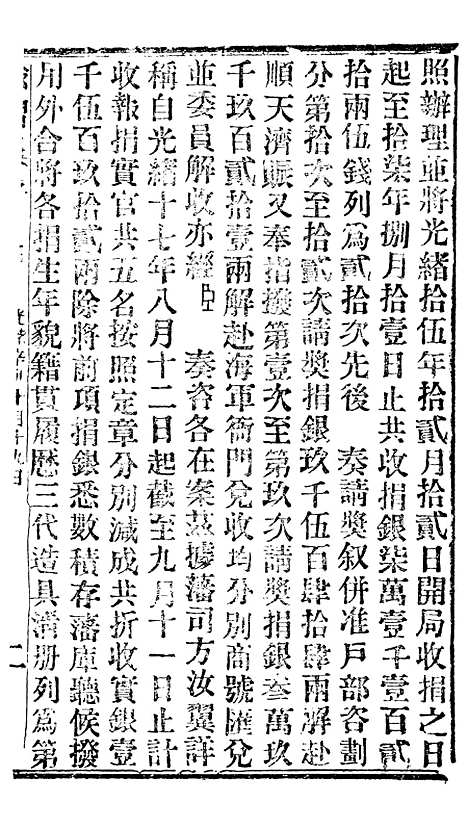 照辦理並將光緒拾伍年拾貳月拾貳日開局收捐之日
起至拾柒年捌月拾壹日止共收捐銀柒萬壹千壹百貳
拾兩伍錢列為貳拾次先後　奏請奬叙併准戶部咨劃
分第拾次至拾貳次請奬捐銀玖千伍百肆拾肆兩解赴
順天濟賑又奉指撥第壹次至第玖次請奬捐銀叁萬玖
千玖百貳拾壹兩解赴海軍衙門兌收均分別商號匯兌
並委員解收亦經臣　奏咨各在案茲據藩司方汝翼詳
稱自光緒十七年八月十二日起截至九月十一日止計
收報捐實官共五名按照定章分別減成共折收實銀壹
千伍百玖拾貳兩除將前項捐銀悉數積存藩庫聽候撥
用外合將各捐生年貌籍貫履歷三代造具清册列為第
二